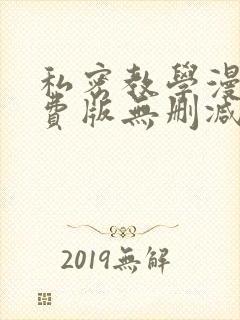 私密教學漫
費版無刪減
2019無解